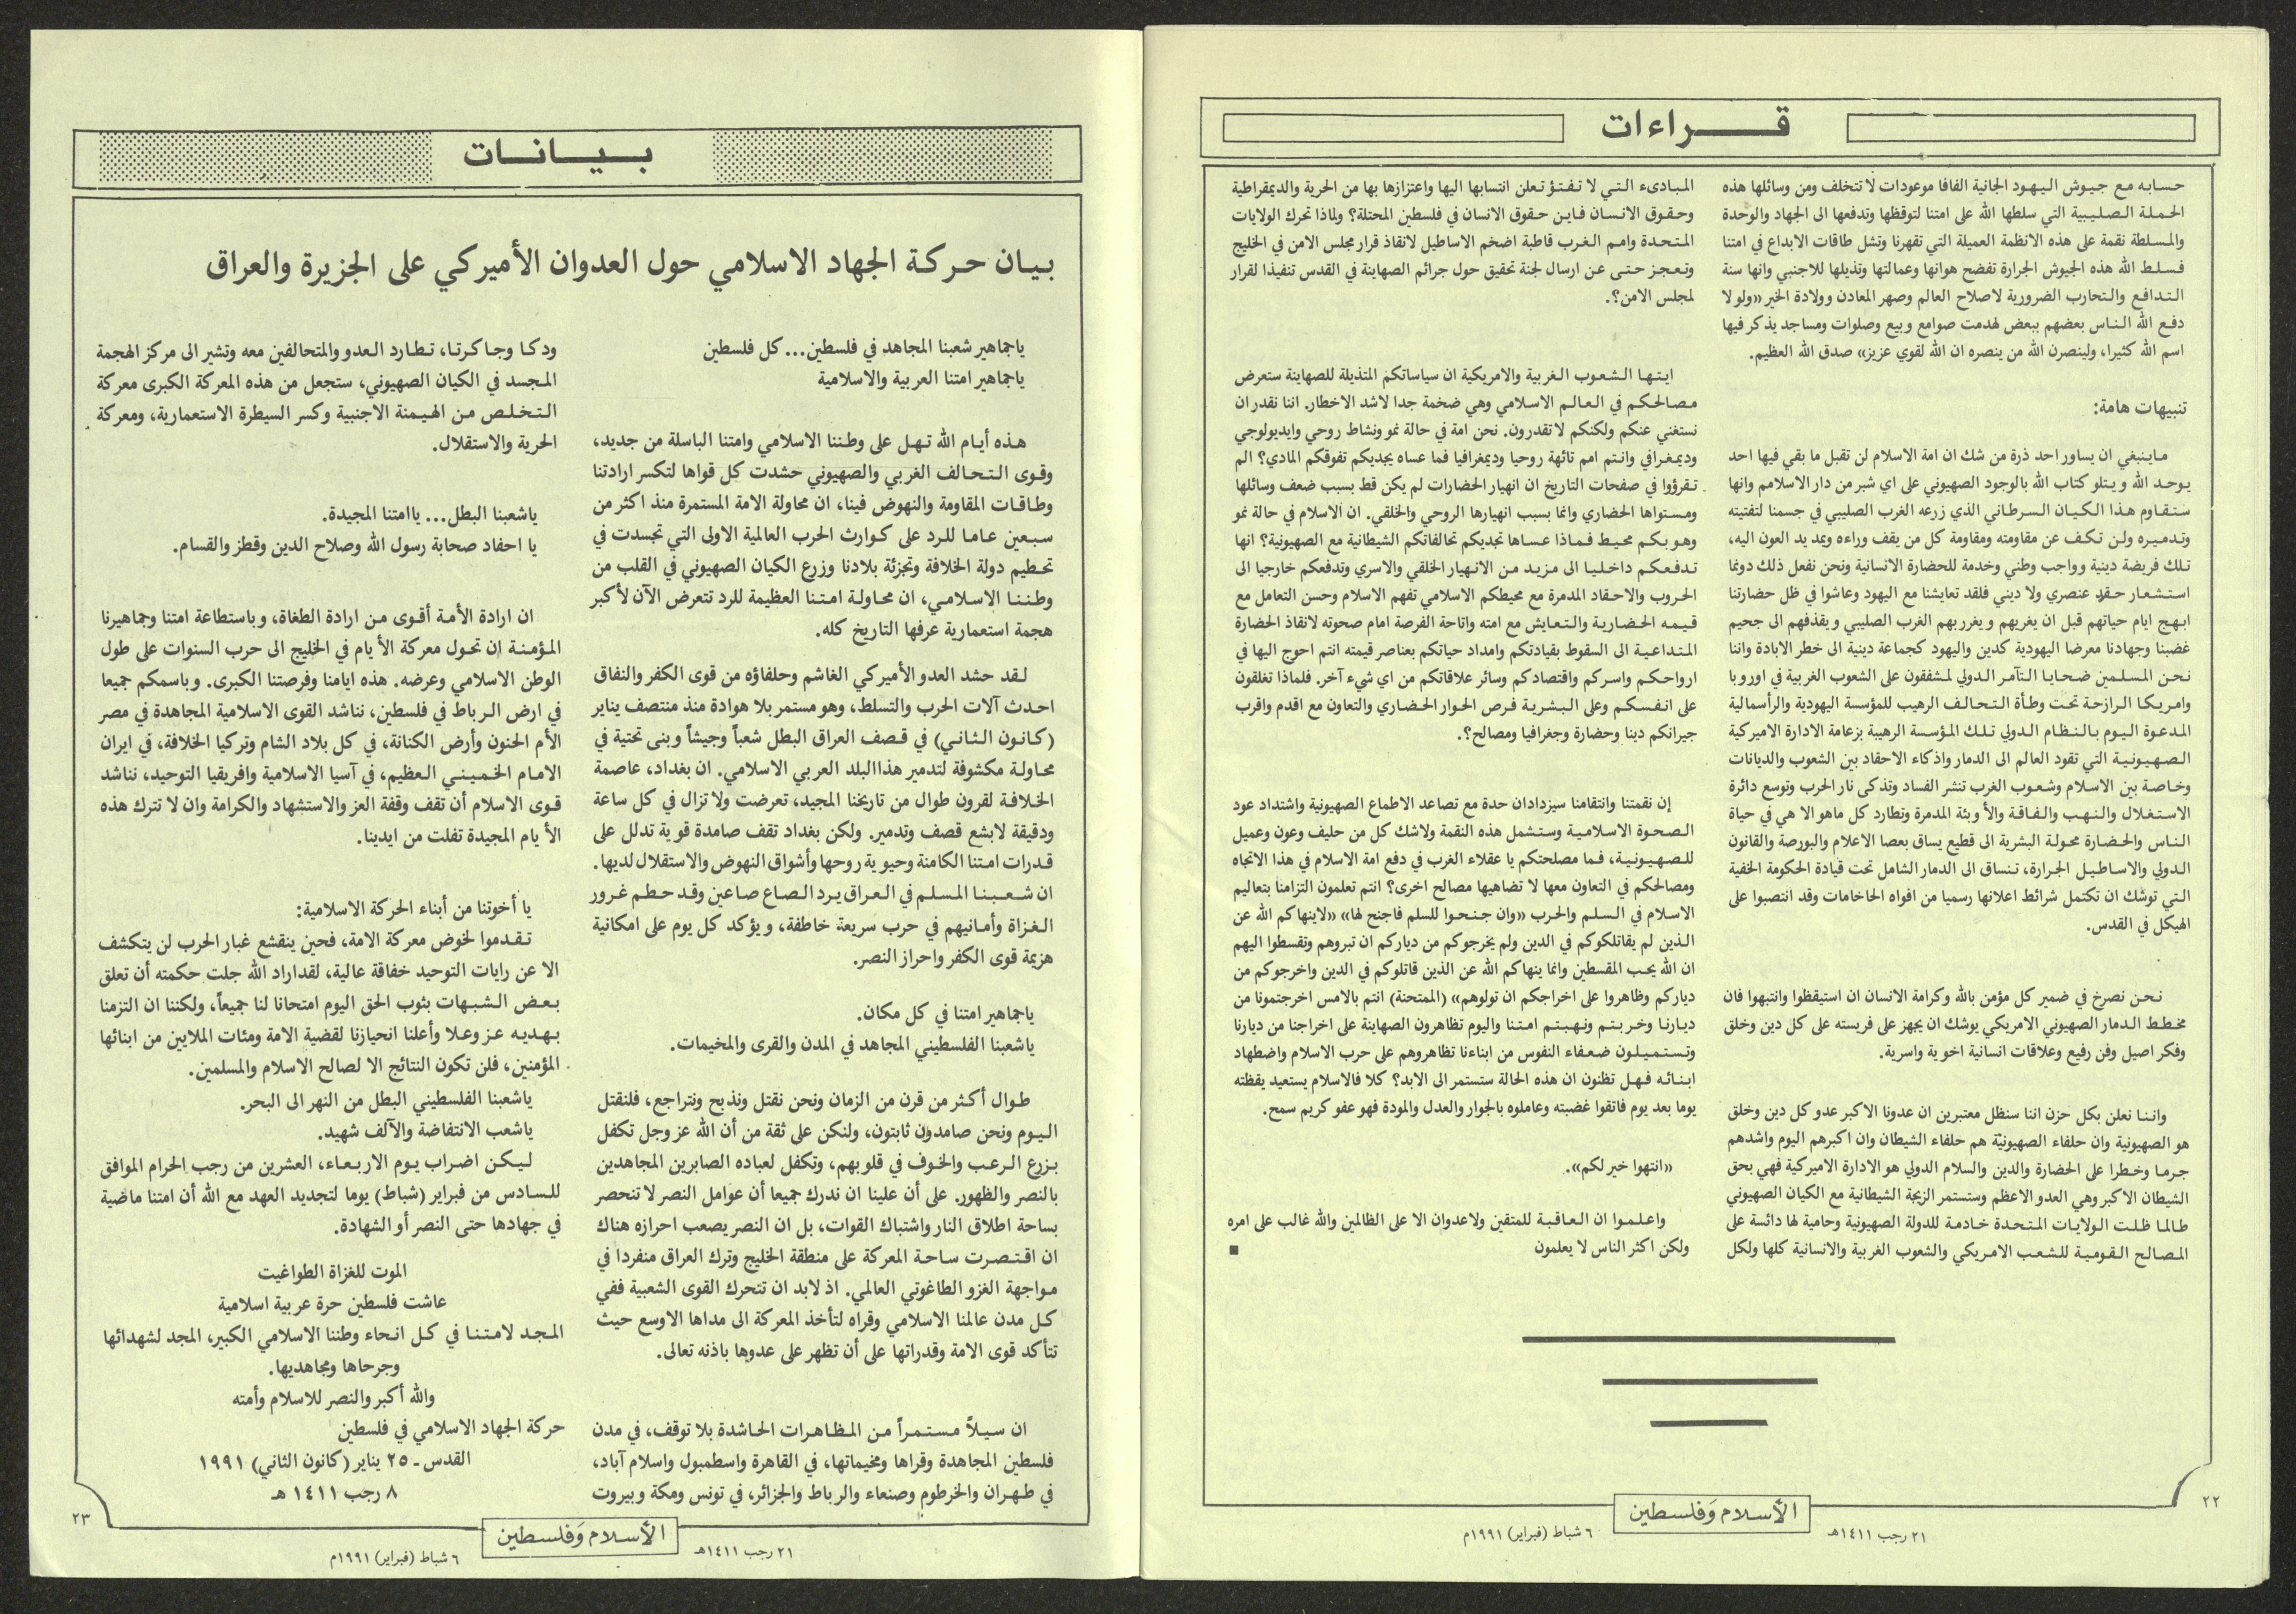 قـــراءات
حسابه مع جيوش اليهود الجانية الفافا موعودات لا تتخلف ومن وسائلها هذه
الحملة الصليبية التي سلطها الله على امتنا لتوقظها وتدفعها الى الجهاد والوحدة
والمسلطة نقمة على هذه الانظمة العميلة التي تقهرنا وتشل طاقات الابداع في امتنا
فسلط الله هذه الجيوش الجرارة تفضح هوانها وعمالتها وتذيلها للاجنبي وانها سنة
التدافع والتحارب الضرورية لاصلاح العالم وصهر المعادن وولادة الخير «ولولا
دفع الله الناس بعضهم ببعض لهدمت صوامع وبيع وصلوات ومساجد يذكر فيها
اسم الله كثيرا، ولينصرن الله من ينصره ان الله لقوي عزيز» صدق الله العظيم.
تنبيهات هامة:
ماينبغي ان يساور احد ذرة من شك ان امة الاسلام لن تقبل ما بقي فيها احد
يوحد الله ويتلو كتاب الله بالوجود الصهيوني على اي شبر من دار الاسلام وانها
ستقاوم هذا الكيان السرطاني الذي زرعه الغرب الصليبي في جسمنا لتفتيته
وتدميره ولن تكف عن مقاومته ومقاومة كل من يقف وراءه ويمد يد العون اليه،
تلك فريضة دينية وواجب وطني وخدمة للحضارة الانسانية ونحن نفعل ذلك دونما
استشعار حقد عنصري ولا ديني فلقد تعايشنا مع اليهود وعاشوا في ظل حضارتنا
ابهج ايام حياتهم قبل ان يغريهم ويغرربهم الغرب الصليبي ويقذفهم الى جحيم
غضبنا وجهادنا معرضا اليهودية كدين واليهود كجماعة دينية الى خطر الابادة واننا
نحن المسلمين ضحايا التآمر الدولي لمشفقون على الشعوب الغربية في اوروبا
وامريكا الرازحة تحت وطأة التحالف الرهيب للمؤسسة اليهودية والرأسمالية
المدعوة اليوم بالنظام الدولي تلك المؤسسة الرهيبة بزعامة الادارة الاميركية
الصهيونية التي تقود العالم الى الدمار واذكاء الاحقاد بين الشعوب والديانات
وخاصة بين الاسلام وشعوب الغرب تنشر الفساد وتذكى نار الحرب وتوسع دائرة
الاستغلال والنهب والفاقة والأوبئة المدمرة وتطارد كل ماهو الا هي في حياة
الناس والحضارة محولة البشرية الى قطيع يساق بعصا الاعلام والبورصة والقانون
الدولي والاساطيل الجرارة، تنساق الى الدمار الشامل تحت قيادة الحكومة الخفية
التي توشك ان تكتمل شرائط اعلانها رسميا من افواه الحاخامات وقد انتصبوا على
الهيكل في القدس.
نحن نصرخ في ضمير كل مؤمن بالله وكرامة الانسان ان استيقظوا وانتبهوا فان
مخطط الدمار الصهيوني الامريكي يوشك ان يجهز على فريسته على كل دين وخلق
وفكر اصيل وفن رفيع وعلاقات انسانية اخوية واسرية.
واننا نعلن بكل حزن اننا سنظل معتبرين ان عدونا الاكبر عدو كل دين وخلق
هو الصهيونية وان حلفاء الصهيونيّة هم حلفاء الشيطان وان اكبرهم اليوم واشدهم
جرما وخطرا على الحضارة والدين والسلام الدولي هو الادارة الاميركية فهي بحق
الشيطان الاكبر وهي العدو الاعظم وستستمر الزيجة الشيطانية مع الكيان الصهيوني
طالما ظلت الولايات المتحدة خادمة للدولة الصهيونية وحامية لها دائسة على
المصالح القومية للشعب الامريكي والشعوب الغربية والانسانية كلها ولكل
المبادىء التي لا تفتؤ تعلن انتسابها اليها واعتزازها بها من الحرية والديمقراطية
وحقوق الانسان فاين حقوق الانسان في فلسطين المحتلة؟ ولماذا تحرك الولايات
المتحدة وامم الغرب قاطبة اضخم الاساطيل لانقاذ قرار مجلس الامن في الخليج
وتعجز حتى عن ارسال لجنة تحقيق حول جرائم الصهاينة في القدس تنفيذا لقرار
لمجلس الامن؟.
ايتها الشعوب الغربية والامريكية ان سياساتكم المتذيلة للصهاينة ستعرض
مصالحكم في العالم الاسلامي وهي ضخمة جدا لاشد الاخطار. اننا نقدر ان
نستغني عنكم ولكنكم لا تقدرون. نحن امة في حالة نمو ونشاط روحي وايديولوجي
وديمغرافي وانتم امم تائهة روحيا وديمغرافيا فما عساه يجديكم تفوقكم المادي؟ الم
تقرؤوا في صفحات التاريخ ان انهيار الحضارات لم يكن قط بسبب ضعف وسائلها
ومستواها الحضاري وانما بسبب انهيارها الروحي والخلقي. ان الاسلام في حالة نمو
وهو بكم محيط فماذا عساها تجديكم تحالفاتكم الشيطانية مع الصهيونية؟ انها
تدفعكم داخليا الى مزيد من الانهيار الخلقي والاسري وتدفعكم خارجيا الى
الحروب والاحقاد المدمرة مع محيطكم الاسلامي تفهم الاسلام وحسن التعامل مع
قيمه الحضارية والتعايش مع امته واتاحة الفرصة امام صحوته لانقاذ الحضارة
المتداعية الى السقوط بقيادتكم وامداد حياتكم بعناصر قيمته انتم احوج اليها في
ارواحكم واسركم واقتصادكم وسائر علاقاتكم من اي شيء آخر. فلماذا تغلقون
على انفسكم وعلى البشرية فرص الحوار الحضاري والتعاون مع اقدم واقرب
جيرانكم دينا وحضارة وجغرافيا ومصالح؟.
إن نقمتنا وانتقامنا سيزدادان حدة مع تصاعد الاطماع الصهيونية واشتداد عود
الصحوة الاسلامية وستشمل هذه النقمة ولاشك كل من حليف وعون وعميل
للصهيونية، فما مصلحتكم يا عقلاء الغرب في دفع امة الاسلام في هذا الاتجاه
ومصالحكم في التعاون معها لا تضاهيها مصالح اخرى؟ انتم تعلمون التزامنا بتعاليم
الاسلام في السلم والحرب «وان جنحوا للسلم فاجنح لها» «لاينهاكم الله عن
الذين لم يقاتلكوكم في الدين ولم يخرجوكم من دياركم ان تبروهم وتقسطوا اليهم
ان الله يحب المقسطين وانما ينهاكم الله عن الذين قاتلوكم في الدين واخرجوكم من
دياركم وظاهروا على اخراجكم ان تولوهم» (الممتحنة) انتم بالامس اخرجتمونا من
ديارنا وخربتم ونهبتم امتنا واليوم تظاهرون الصهاينة على اخراجنا من ديارنا
وتستميلون ضعفاء النفوس من ابناءنا تظاهروهم على حرب الاسلام واضطهاد
ابنائه فهل تظنون ان هذه الحالة ستستمر الى الابد؟ كلا فالاسلام يستعيد يقظته
يوما بعد يوم فاتقوا غضبته وعاملوه بالجوار والعدل والمودة فهو عفو كريم سمح.
«انتهوا خير لكم».
واعلموا ان العاقبة للمتقين ولاعدوان الا على الظالمين والله غالب على امره
ولكن اكثر الناس لا يعلمون ■
٢٢
الأسلام وَفلسطين
٢١ رجب ١٤١١هـ
٦ شباط (فبراير) ١٩٩١م
بـيـانـات
بيان حركة الجهاد الاسلامي حول العدوان الأميركي على الجزيرة والعراق
ياجماهير شعبنا المجاهد في فلسطين... كل فلسطين
ياجماهير امتنا العربية والاسلامية
هذه أيام الله تهل على وطننا الاسلامي وامتنا الباسلة من جديد،
وقوى التحالف الغربي والصهيوني حشدت كل قواها لتكسر ارادتنا
وطاقات المقاومة والنهوض فينا، ان محاولة الامة المستمرة منذ اكثر من
سبعين عاما للرد على كوارث الحرب العالمية الاولى التي تجسدت في
تحطيم دولة الخلافة وتجزئة بلادنا وزرع الكيان الصهيوني في القلب من
وطننا الاسلامي، ان محاولة امتنا العظيمة للرد تتعرض الآن لأكبر
هجمة استعمارية عرفها التاريخ كله.
لقد حشد العدو الأميركي الغاشم وحلفاؤه من قوى الكفر والنفاق
احدث آلات الحرب والتسلط، وهو مستمر بلا هوادة منذ منتصف يناير
(كانون الثاني) في قصف العراق البطل شعباً وجيشاً وبنى تحتية في
محاولة مكشوفة لتدمير هذا البلد العربي الاسلامي. ان بغداد، عاصمة
الخلافة لقرون طوال من تاريخنا المجيد، تعرضت ولا تزال في كل ساعة
ودقيقة لابشع قصف وتدمير. ولكن بغداد تقف صامدة قوية تدلل على
قدرات امتنا الكامنة وحيوية روحها وأشواق النهوض والاستقلال لديها.
ان شعبنا المسلم في العراق يرد الصاع صاعين وقد حطم غرور
الغزاة وأمانيهم في حرب سريعة خاطفة، ويؤكد كل يوم على امكانية
هزيمة قوى الكفر واحراز النصر.
ياجماهير امتنا في كل مكان.
ياشعبنا الفلسطيني المجاهد في المدن والقرى والمخيمات.
طوال أكثر من قرن من الزمان ونحن نقتل ونذبح ونتراجع، فلنقتل
اليوم ونحن صامدون ثابتون، ولنكن على ثقة من أن الله عز وجل تكفل
بزرع الرعب والخوف في قلوبهم، وتكفل لعباده الصابرين المجاهدين
بالنصر والظهور. على أن علينا ان ندرك جميعا أن عوامل النصر لا تنحصر
بساحة اطلاق النار واشتباك القوات، بل ان النصر يصعب احرازه هناك
ان اقتصرت ساحة المعركة على منطقة الخليج وترك العراق منفردا في
مواجهة الغزو الطاغوتي العالمي. اذ لابد ان تتحرك القوى الشعبية ففي
كل مدن عالمنا الاسلامي وقراه لتأخذ المعركة الى مداها الاوسع حيث
تتأكد قوى الامة وقدراتها على أن تظهر على عدوها باذنه تعالى.
ان سيلاً مستمراً من المظاهرات الحاشدة بلا توقف، في مدن
فلسطين المجاهدة وقراها ومخيماتها، في القاهرة واسطمبول واسلام آباد،
في طهران والخرطوم وصنعاء والرباط والجزائر، في تونس ومكة وبيروت
ودكا وجاكرتا، تطارد العدو والمتحالفين معه وتشير الى مركز الهجمة
المجسد في الكيان الصهيوني، ستجعل من هذه المعركة الكبرى معركة
التخلص من الهيمنة الاجنبية وكسر السيطرة الاستعمارية، ومعركة
الحرية والاستقلال.
ياشعبنا البطل... ياامتنا المجيدة.
يا احفاد صحابة رسول الله وصلاح الدين وقطز والقسام.
ان ارادة الأمة أقوى من ارادة الطغاة، وباستطاعة امتنا وجماهيرنا
المؤمنة ان تحول معركة الأيام في الخليج الى حرب السنوات على طول
الوطن الاسلامي وعرضه. هذه ايامنا وفرصتنا الكبرى. وباسمكم جميعا
في ارض الرباط في فلسطين، نناشد القوى الاسلامية المجاهدة في مصر
الأم الحنون وأرض الكنانة، في كل بلاد الشام وتركيا الخلافة، في ايران
الامام الخميني العظيم، في آسيا الاسلامية وافريقيا التوحيد، نناشد
قوى الاسلام أن تقف وقفة العز والاستشهاد والكرامة وان لا تترك هذه
الأيام المجيدة تفلت من ايدينا.
يا أخوتنا من أبناء الحركة الاسلامية:
تقدموا لخوض معركة الامة، فحين ينقشع غبار الحرب لن يتكشف
الا عن رايات التوحيد خفاقة عالية، لقد اراد الله جلت حكمته أن تعلق
بعض الشبهات بثوب الحق اليوم امتحانا لنا جميعاً، ولكننا ان التزمنا
بهديه عز وعلا وأعلنا انحيازنا لقضية الامة ومئات الملايين من ابنائها
المؤمنين، فلن تكون النتائج الا لصالح الاسلام والمسلمين.
ياشعبنا الفلسطيني البطل من النهر الى البحر.
ياشعب الانتفاضة والآلف شهيد.
ليكن اضراب يوم الاربعاء، العشرين من رجب الحرام الموافق
للسادس من فبراير (شباط) يوما لتجديد العهد مع الله أن امتنا ماضية
في جهادها حتى النصر أو الشهادة.
الموت للغزاة الطواغيت
عاشت فلسطين حرة عربية اسلامية
المجد لامتنا في كل انحاء وطننا الاسلامي الكبير، المجد لشهدائها
وجرحاها ومجاهديها.
والله أكبر والنصر للاسلام وأمته
حركة الجهاد الاسلامي في فلسطين
القدس ـ ٢٥ يناير (كانون الثاني) ١٩٩١
٨ رجب ١٤١١ هـ
٢٣
الأسلام وَفلسطين
٢١ رجب ١٤١١هـ
٦ شباط (فبراير) ١٩٩١م